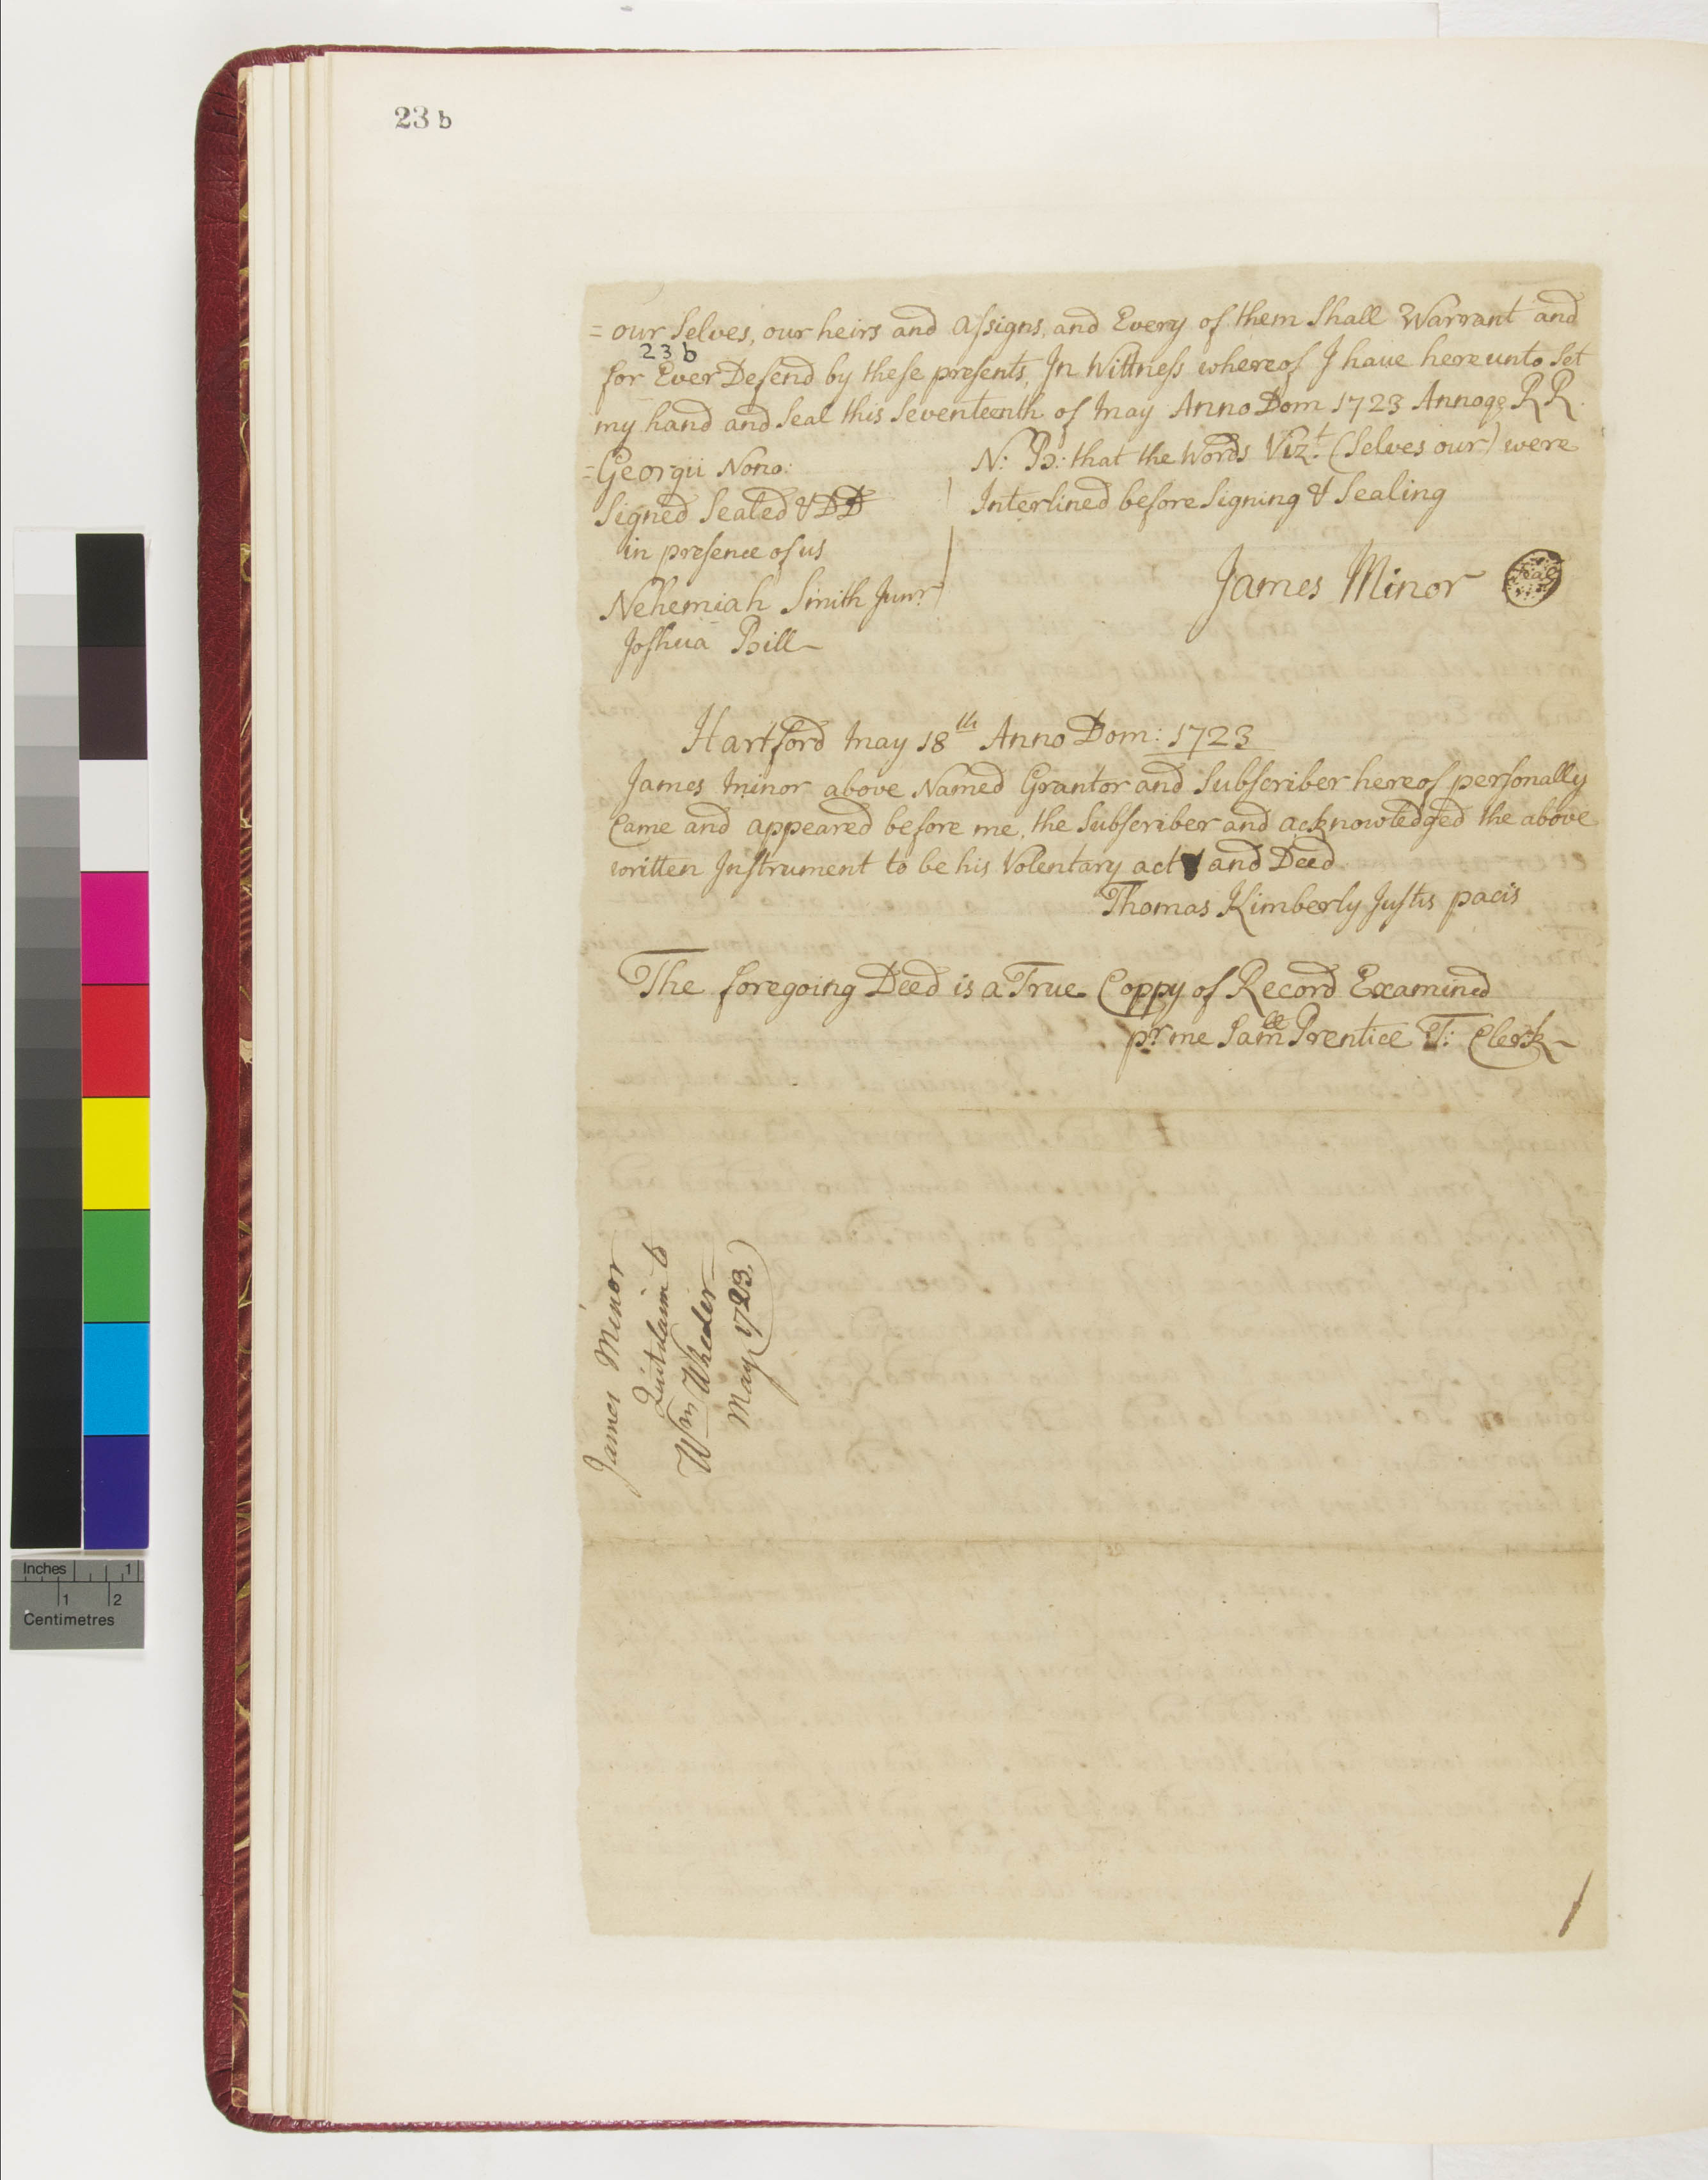 23 b
= our Selves, our heirs and assigns, and Every of them Shall Warrant and
23 b
for Ever Defend by these presents, In Wittness whereof I have hereunto Set
my hand and Seal this Seventeenth of May Anno Dom 1723 Annoqe RR
=Georgii Nono:
N: B: that the Words Vizt. (Selves our) were
Interlined before Signing & Sealing
Signed Sealed & DD
in presence of us
Nehemiah Smith Junr.
Joshua Bill
James Minor Seal
Hartford May 18th Anno Dom: 1723
James Minor above Named Grantor and Subscriber hereof personally
Came and appeared before me, the Subscriber and acknowledged the above
written Instrument to be his Volentary act and Deed
Thomas Kimberly Justis pacis
The foregoing Deed is a True Coppy of Record Examined
pr me Samll Prentice T: Clerk
James Minor
Quitclaim to
Wm Wheeler
May 1723
Inches 1
1 2
Centimetres